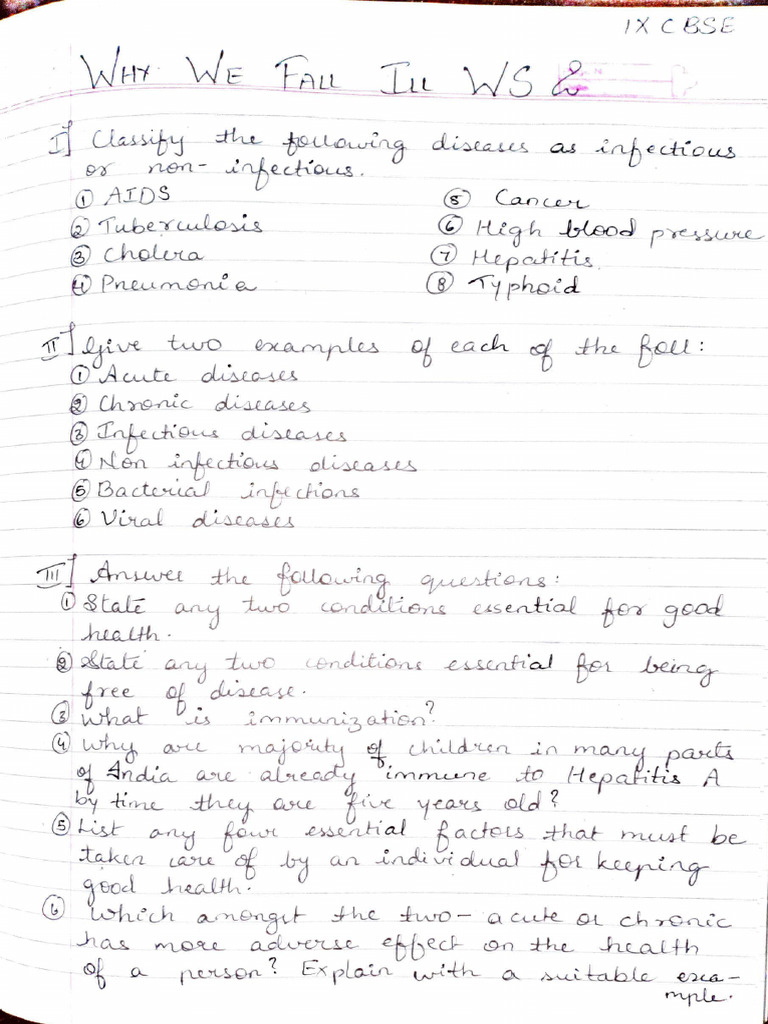 IX CBSE
WHY WE FALL ILL WS 2
I] Classify the following diseases as infectious
or non-infectious.
① AIDS
② Tuberculosis
③ Cholera
④ Pneumonia
⑤ Cancer
⑥ High blood pressure
⑦ Hepatitis
⑧ Typhoid
II] Give two examples of each of the foll:
① Acute diseases
② Chronic diseases
③ Infectious diseases
④ Non infectious diseases
⑤ Bacterial infections
⑥ Viral diseases
III] Answer the following questions:
① State any two conditions essential for good
health.
② State any two conditions essential for being
free of disease.
③ What is immunization?
④ Why are majority of children in many parts
of India are already immune to Hepatitis A
by time they are five years old?
⑤ List any four essential factors that must be
taken care of by an individual for keeping
good health.
⑥ Which amongst the two- acute or chronic
has more adverse effect on the health
of a person? Explain with a suitable exa-
mple.